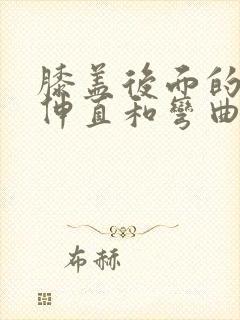 膝盖後而的
伸直和彎曲
布赫